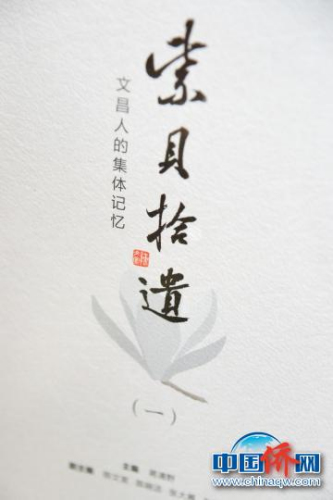 索貝拾遺
文昌人的集体记忆
（一）
主编
中国侨网
www.chinaqw.com